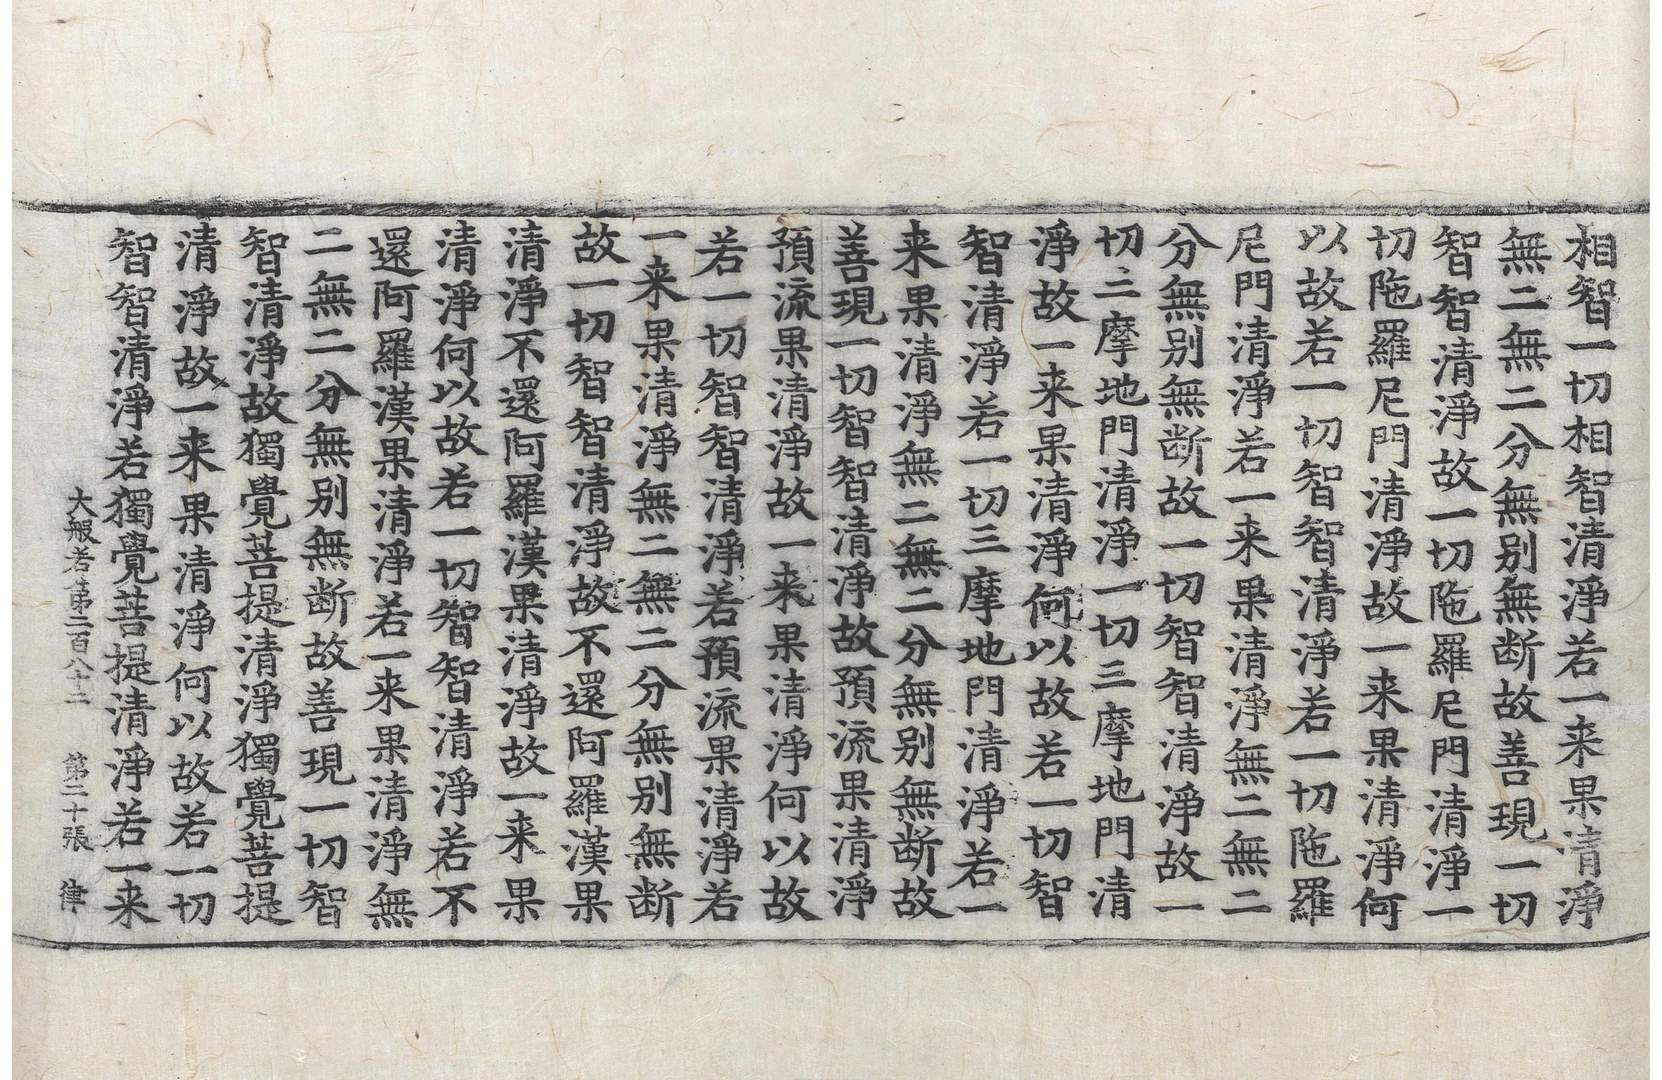 相智一切相智清淨若一来果清淨
無二無二分無别無断故善現一切
智智清淨故一切陁羅尼門清淨一
切陁羅尼門清淨故一来果清淨何
以故若一切智智清淨若一切陁羅
尼門清淨若一来果清淨無二無二
分無别無断故一切智智清淨故一
切三摩地門清淨一切三摩地門清
淨故一来果清淨何以故若一切智
智清淨若一切三摩地門清淨若一
来果清淨無二無二分無别無断故
善現一切智智清淨故預流果清淨
預流果清淨故一来果清淨何以故
若一切智智清淨若預流果清淨若
一来果清淨無二無二分無别無断
故一切智智清淨故不還阿羅漢果
清淨不還阿羅漢果清淨故一来果
清淨何以故若一切智智清淨若不
還阿羅漢果清淨若一来果清淨無
二無二分無别無断故善現一切智
智清淨故獨覺菩提清淨獨覺菩提
清淨故一来果清淨何以故若一切
智智清淨若獨覺菩提清淨若一来
大般若第二百八十二 第二十張 律